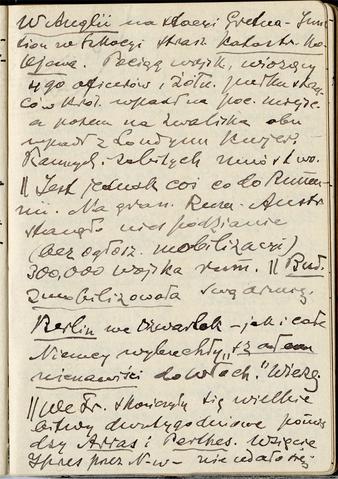 W Anglii na stacyi Gretna-Junc
tion w Szkocyi strasz. katastr. ko
lejowa. Pociąg wojsk, wiozący
490 oficerów i żołn. pułku
ców król. wpadł na poc. miejsc.
a potem na zwaliska obu
wpadł z Londynu kurjer.
Rannych i zabitych mnóstwo.
|| Jest jednak coś co do Rumu
nii. Na gran. Rum.-Austr.
stanęło niespodzianie
(bez ogłosz. mobilizacyi)
300,000 wojska rum. ||
zmobilizowała swą armię.
Berlin we czwartek - jak i całe
Niemcy wybuchły „szałem
nienawiści do Włoch."
|| We Fr. skończyły się wielkie
bitwy dwutygodniowe pomię
dzy Arras i Perthes. Wzięcie
Ypres przez N-w - nie udało się.